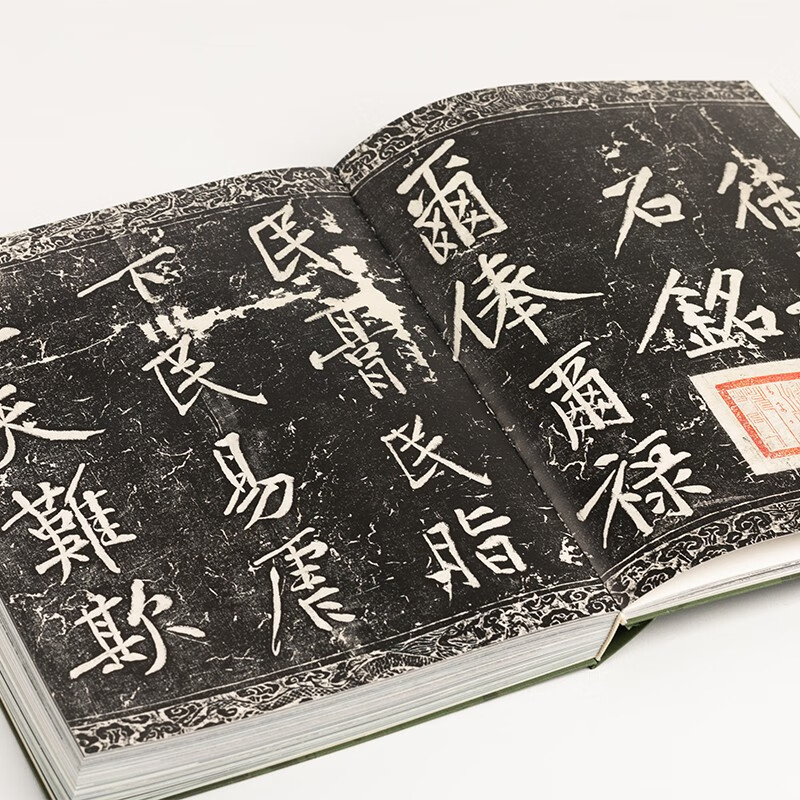 石銘
爾俸爾祿
民膏民脂
下民易虐
天難欺